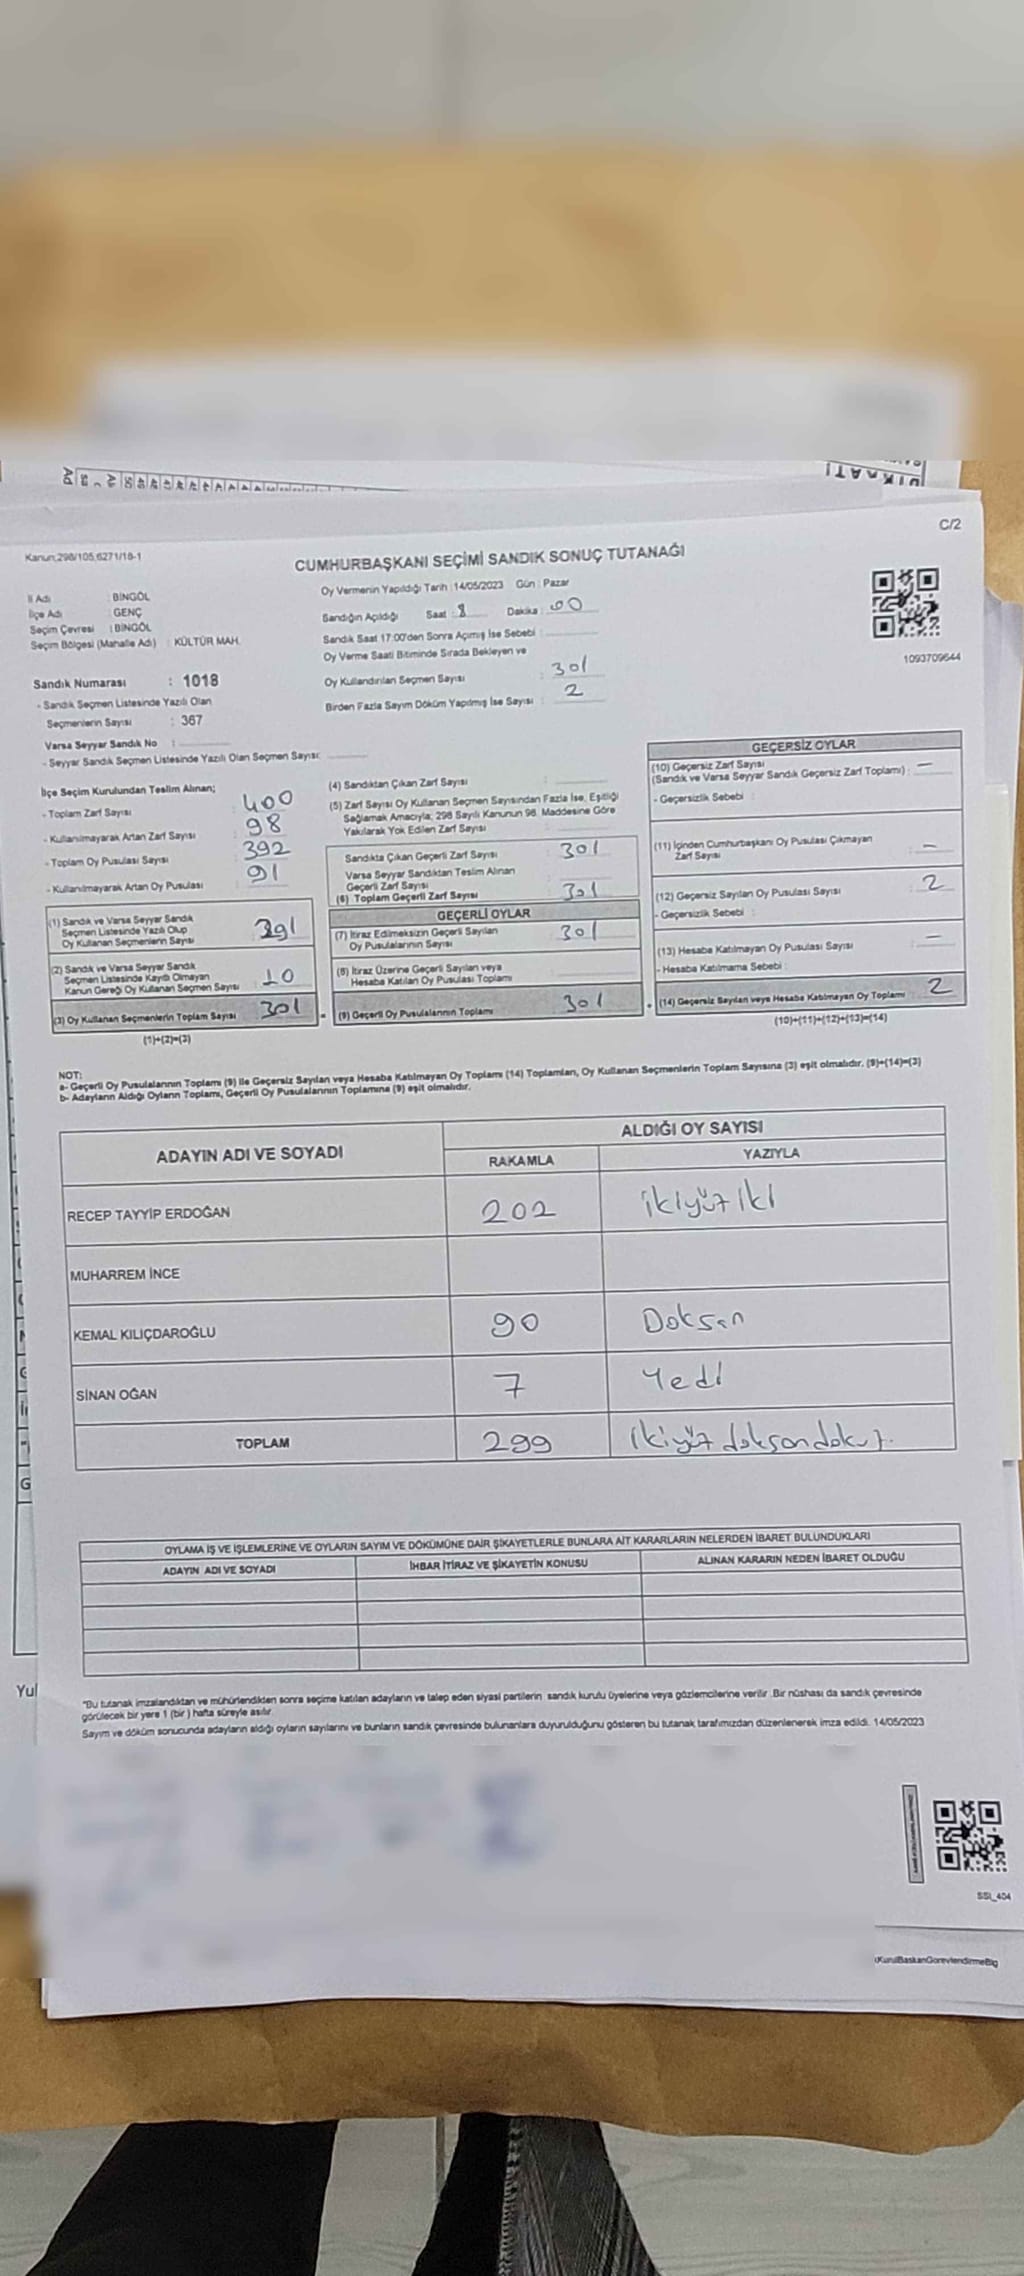 C/2
Kanun:298/105,6271/18-1
CUMHURBAŞKANI SEÇİMİ SANDIK SONUÇ TUTANAĞI
İl Adı : BİNGÖL
İlçe Adı : GENÇ
Seçim Çevresi : BİNGÖL
Seçim Bölgesi (Mahalle Adı) : KÜLTÜR MAH.
Sandık Numarası : 1018
- Sandık Seçmen Listesinde Yazılı Olan
Seçmenlerin Sayısı : 367
Varsa Seyyar Sandık No :
- Seyyar Sandık Seçmen Listesinde Yazılı Olan Seçmen Sayısı:
Oy Vermenin Yapıldığı Tarih : 14/05/2023 Gün : Pazar
Sandığın Açıldığı Saat : 8 Dakika : 00
Sandık Saat 17:00'den Sonra Açımış İse Sebebi :
Oy Verme Saati Bitiminde Sırada Bekleyen ve
Oy Kullandırılan Seçmen Sayısı : 301
Birden Fazla Sayım Döküm Yapılmış İse Sayısı : 2
1093709644
İlçe Seçim Kurulundan Teslim Alınan;
- Toplam Zarf Sayısı : 400
- Kullanılmayarak Artan Zarf Sayısı : 98
- Toplam Oy Pusulası Sayısı : 392
- Kullanılmayarak Artan Oy Pusulası : 91
(1) Sandık ve Varsa Seyyar Sandık
Seçmen Listesinde Yazılı Olup
Oy Kullanan Seçmenlerin Sayısı : 391
(2) Sandık ve Varsa Seyyar Sandık
Seçmen Listesinde Kayıtlı Olmayan
Kanun Gereği Oy Kullanan Seçmen Sayısı : 10
(3) Oy Kullanan Seçmenlerin Toplam Sayısı : 301
(1)+(2)=(3)
(4) Sandıktan Çıkan Zarf Sayısı :
(5) Zarf Sayısı Oy Kullanan Seçmen Sayısından Fazla İse, Eşitliği
Sağlamak Amacıyla; 298 Sayılı Kanunun 98. Maddesine Göre
Yakılarak Yok Edilen Zarf Sayısı
Sandıkta Çıkan Geçerli Zarf Sayısı : 301
Varsa Seyyar Sandıktan Teslim Alınan
Geçerli Zarf Sayısı
(6) Toplam Geçerli Zarf Sayısı : 301
GEÇERLİ OYLAR
(7) İtiraz Edilmeksizin Geçerli Sayılan
Oy Pusulalarının Sayısı : 301
(8) İtiraz Üzerine Geçerli Sayılan veya
Hesaba Katılan Oy Pusulası Toplamı
(9) Geçerli Oy Pusulalarının Toplamı : 301
GEÇERSİZ OYLAR
(10) Geçersiz Zarf Sayısı
(Sandık ve Varsa Seyyar Sandık Geçersiz Zarf Toplamı) : —
- Geçersizlik Sebebi :
(11) İçinden Cumhurbaşkanı Oy Pusulası Çıkmayan
Zarf Sayısı : —
(12) Geçersiz Sayılan Oy Pusulası Sayısı : 2
- Geçersizlik Sebebi :
(13) Hesaba Katılmayan Oy Pusulası Sayısı : —
- Hesaba Katılmama Sebebi :
(14) Geçersiz Sayılan veya Hesaba Katılmayan Oy Toplamı : 2
(10)+(11)+(12)+(13)=(14)
NOT:
a- Geçerli Oy Pusulalarının Toplamı (9) ile Geçersiz Sayılan veya Hesaba Katılmayan Oy Toplamı (14) Toplamları, Oy Kullanan Seçmenlerin Toplam Sayısına (3) eşit olmalıdır. (9)+(14)=(3)
b- Adayların Aldığı Oyların Toplamı, Geçerli Oy Pusulalarının Toplamına (9) eşit olmalıdır.
ADAYIN ADI VE SOYADI ALDIĞI OY SAYISI
RAKAMLA YAZIYLA
RECEP TAYYİP ERDOĞAN 202 ikiyüz iki
MUHARREM İNCE
KEMAL KILIÇDAROĞLU 90 Doksan
SİNAN OĞAN 7 Yedi
TOPLAM 299 ikiyüz doksandokuz.
OYLAMA İŞ VE İŞLEMLERİNE VE OYLARIN SAYIM VE DÖKÜMÜNE DAİR ŞİKAYETLERLE BUNLARA AİT KARARLARIN NELERDEN İBARET BULUNDUKLARI
ADAYIN ADI VE SOYADI İHBAR İTİRAZ VE ŞİKAYETİN KONUSU ALINAN KARARIN NEDEN İBARET OLDUĞU
*Bu tutanak imzalandıktan ve mühürlendikten sonra seçime katılan adayların ve talep eden siyasi partilerin sandık kurulu üyelerine veya gözlemcilerine verilir. Bir nüshası da sandık çevresinde
görülecek bir yere 1 (bir) hafta süreyle asılır.
Sayım ve döküm sonucunda adayların aldığı oyların sayılarını ve bunların sandık çevresinde bulunanlara duyurulduğunu gösteren bu tutanak tarafımızdan düzenlenerek imza edildi. 14/05/2023
SSI_404
KurulBaskanGorevlendirmeBlg